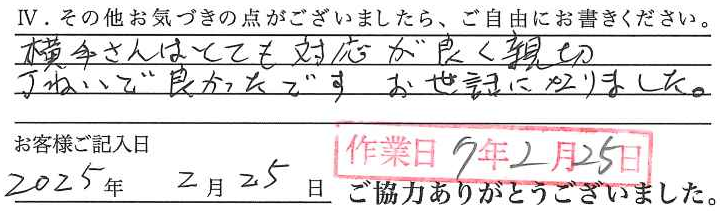 Ⅳ．その他お気づきの点がございましたら、ご自由にお書きください。
横手さんはとても対応が良く親切
丁ねいで良かったです お世話になりました。
お客様ご記入日
作業日 7年2月25日
2025年 2月25日 ご協力ありがとうございました。